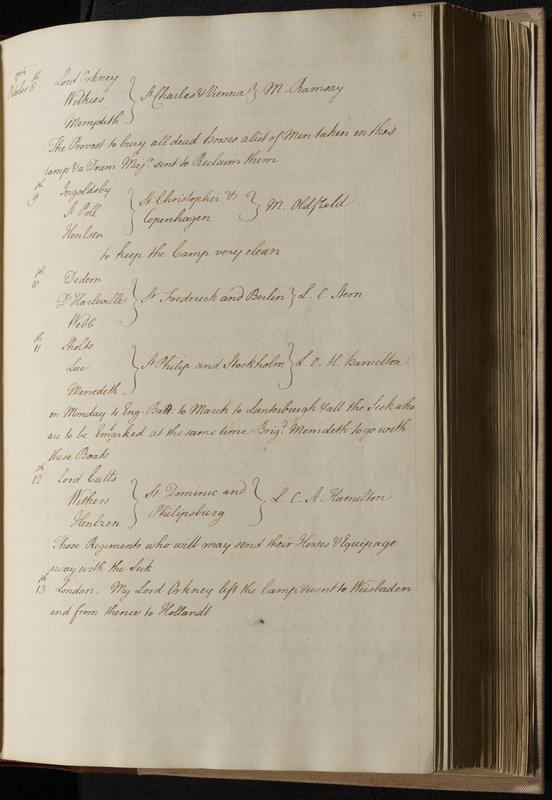 42
1704
October 8th Lord Orkney
Withers } St Charles & Vienna } M. Ramsay
Merrydith
The Provost to bury all dead Horses a list of Men taken in their
Camp & a Drum Majr. sent to Reclaim them
9th Ingoldsby
St Poll } St Christopher & Copenhagen } M. Oldfield
Henlsen
to keep the Camp very clean
10th Dedem
D'Harleville } St Frederick and Berlin } L. C. Stern
Webb
11th Sholts
Luc } St Philip and Stockholm } L. C. H. Hamelton
Meredeth
on Monday 4 Eng. Batt to March to Lanterburgh & all the Sick who
are to be Embarked at the same time Brigr. Merrideth to go with
these Boats
12th Lord Cutts
Withers } St Dominic and Philipsburg } L. C. A. Hamilton
Hentzen
Those Regiments who will may send their Horses & Equipage
away with the Sick
13th London. My Lord Orkney left the Camp & went to Weisbaden
and from thence to Hollandt